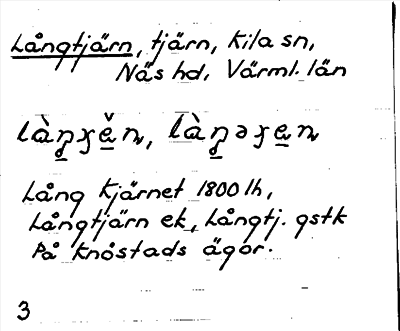 Långtjärn, tjärn, Kila sn,
Näs hd. Värml. län
Lång Kjärnet 1800 lh,
Långtjärn ek, Långtj. gstk
På Knöstads ägor.
3